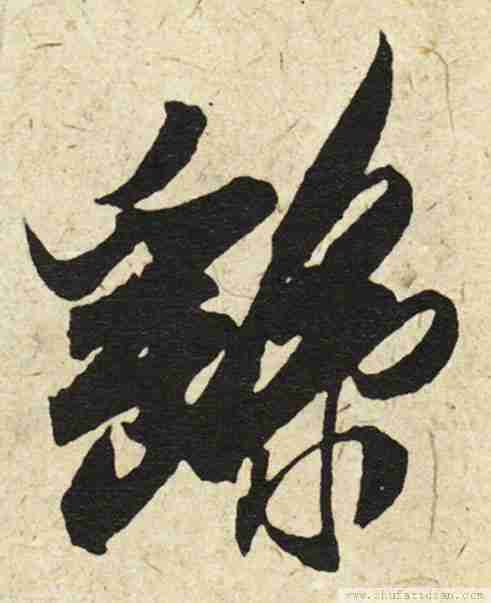 繇
www.shufazidian.com